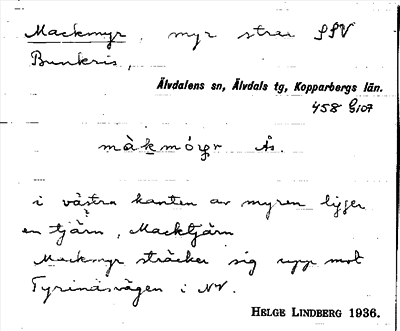 Mackmyr, myr strax SSV
Bunkris,
Älvdalens sn, Älvdals tg, Kopparbergs län.
458
màkmóyr Ås.
i västra kanten av myren ligger
en tjärn, Macktjärn
Mackmyr sträcker sig upp mot
Tyrinäsvägen i NV.
HELGE LINDBERG 1936.